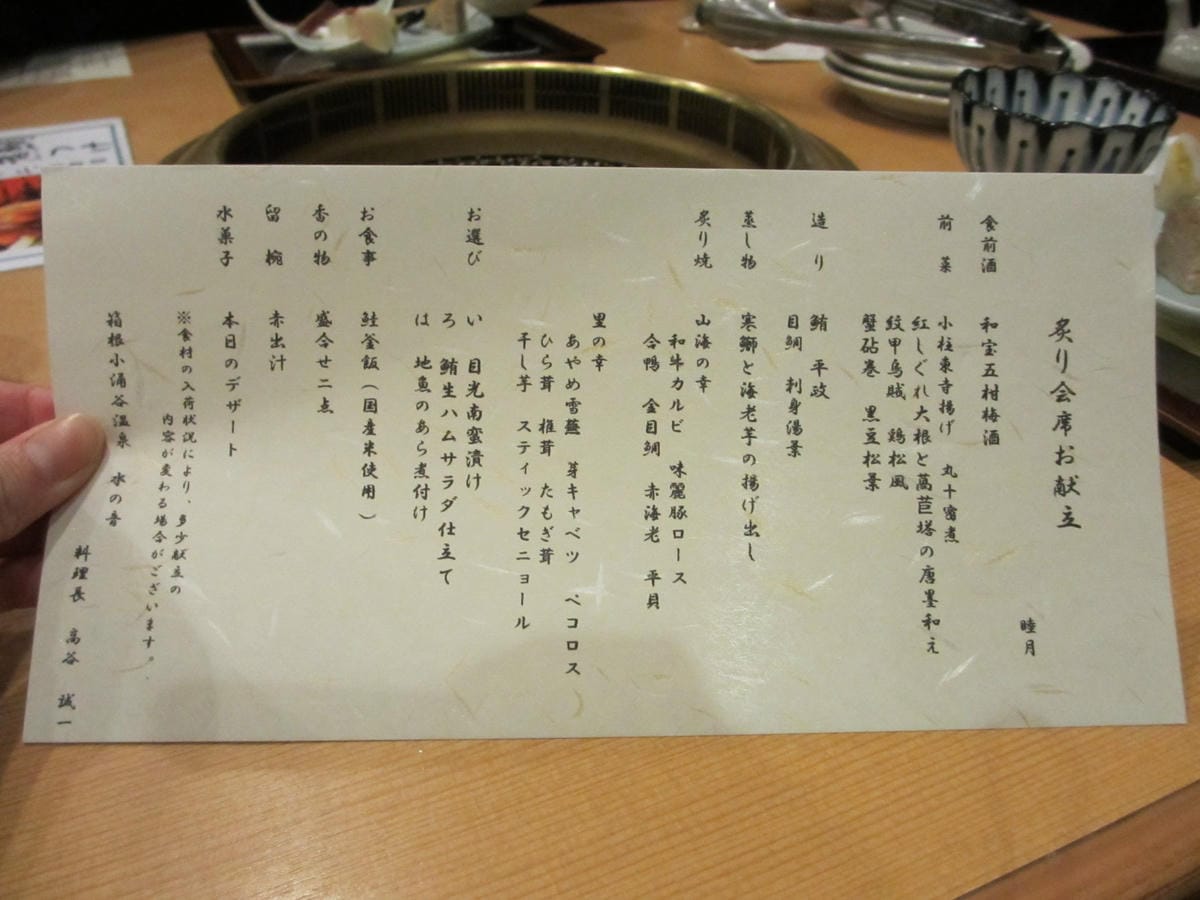 炙り会席お献立
睦月
食前酒　和宝五柑梅酒
前菜　小柱東寺揚げ　丸十蜜煮
紅しぐれ大根と萵苣塔の唐墨和え
紋甲烏賊　鶏松風
蟹砧巻　黒豆松葉
造り　鮪　平政
目鯛　刺身湯葉
蒸し物　寒鰤と海老芋の揚げ出し
炙り焼　山海の幸
和牛カルビ　味麗豚ロース
合鴨　金目鯛　赤海老　平貝
里の幸
あやめ雪蕪　芽キャベツ　ペコロス
ひら茸　椎茸　たもぎ茸
干し芋　スティックセニョール
お選び　い　目光南蛮漬け
ろ　鮪生ハムサラダ仕立て
は　地魚のあら煮付け
お食事　鮭釜飯（国産米使用）
香の物　盛合せ二点
留椀　赤出汁
水菓子　本日のデザート
※食材の入荷状況により、多少献立の
内容が変わる場合がございます。
箱根小涌谷温泉　水の音
料理長　高谷　誠一